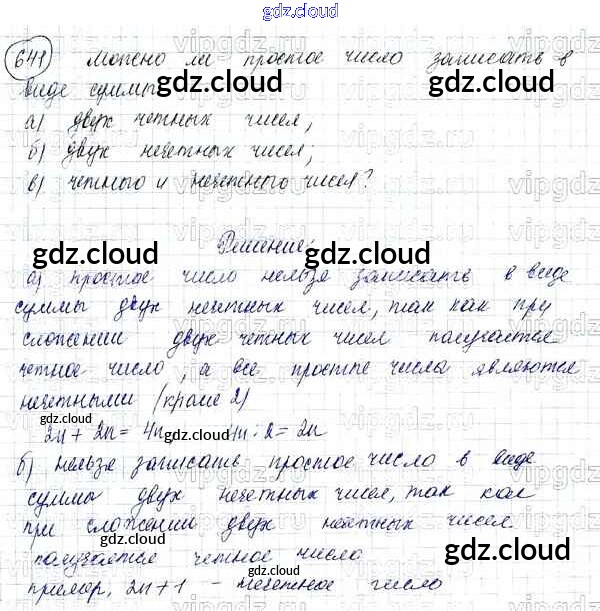 gdz.cloud
641 Можно ли простое число записать в
виде суммы gdz.cloud gdz.cloud
а) двух четных чисел;
б) двух нечетных чисел;
в) четного и нечетного чисел?
gdz.cloud Решение: gdz.cloud
а) простое число нельзя записать в виде
суммы двух нечетных чисел, так как при
сложении двух четных чисел получается
четное число, а все простые числа являются
нечетными (кроме 2)
2n + 2n = 4n gdz.cloud : 2 = 2n gdz.cloud
б) нельзя записать простое число в виде
суммы двух нечетных чисел, так как
при сложении двух нечетных чисел
получается четное число
пример, 2n + 1 - нечетное число
gdz.cloud gdz.cloud